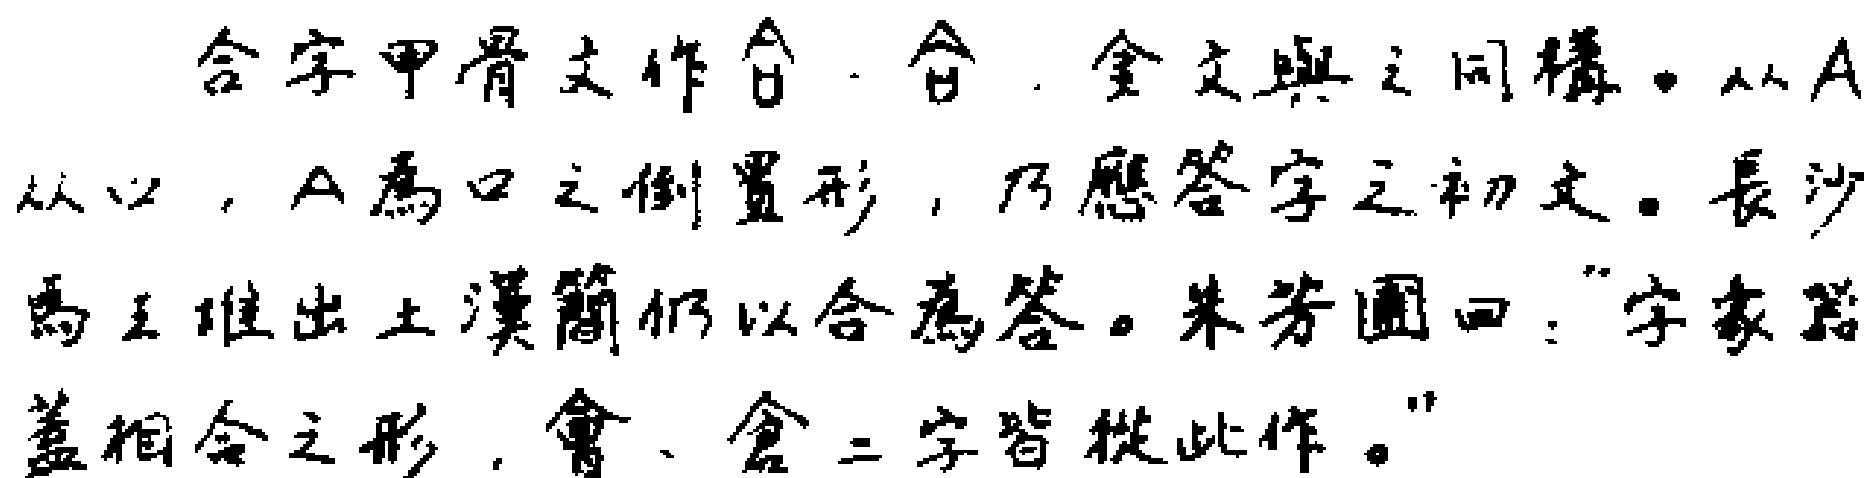 合字甲骨文作合．合．金文與之同樣。从A
从口，A為口之倒置形，乃應答字之初文。長沙
馬王堆出土漢簡仍以合為答。朱芳圃曰：“字象器
蓋相合之形，會、倉二字皆從此作。”